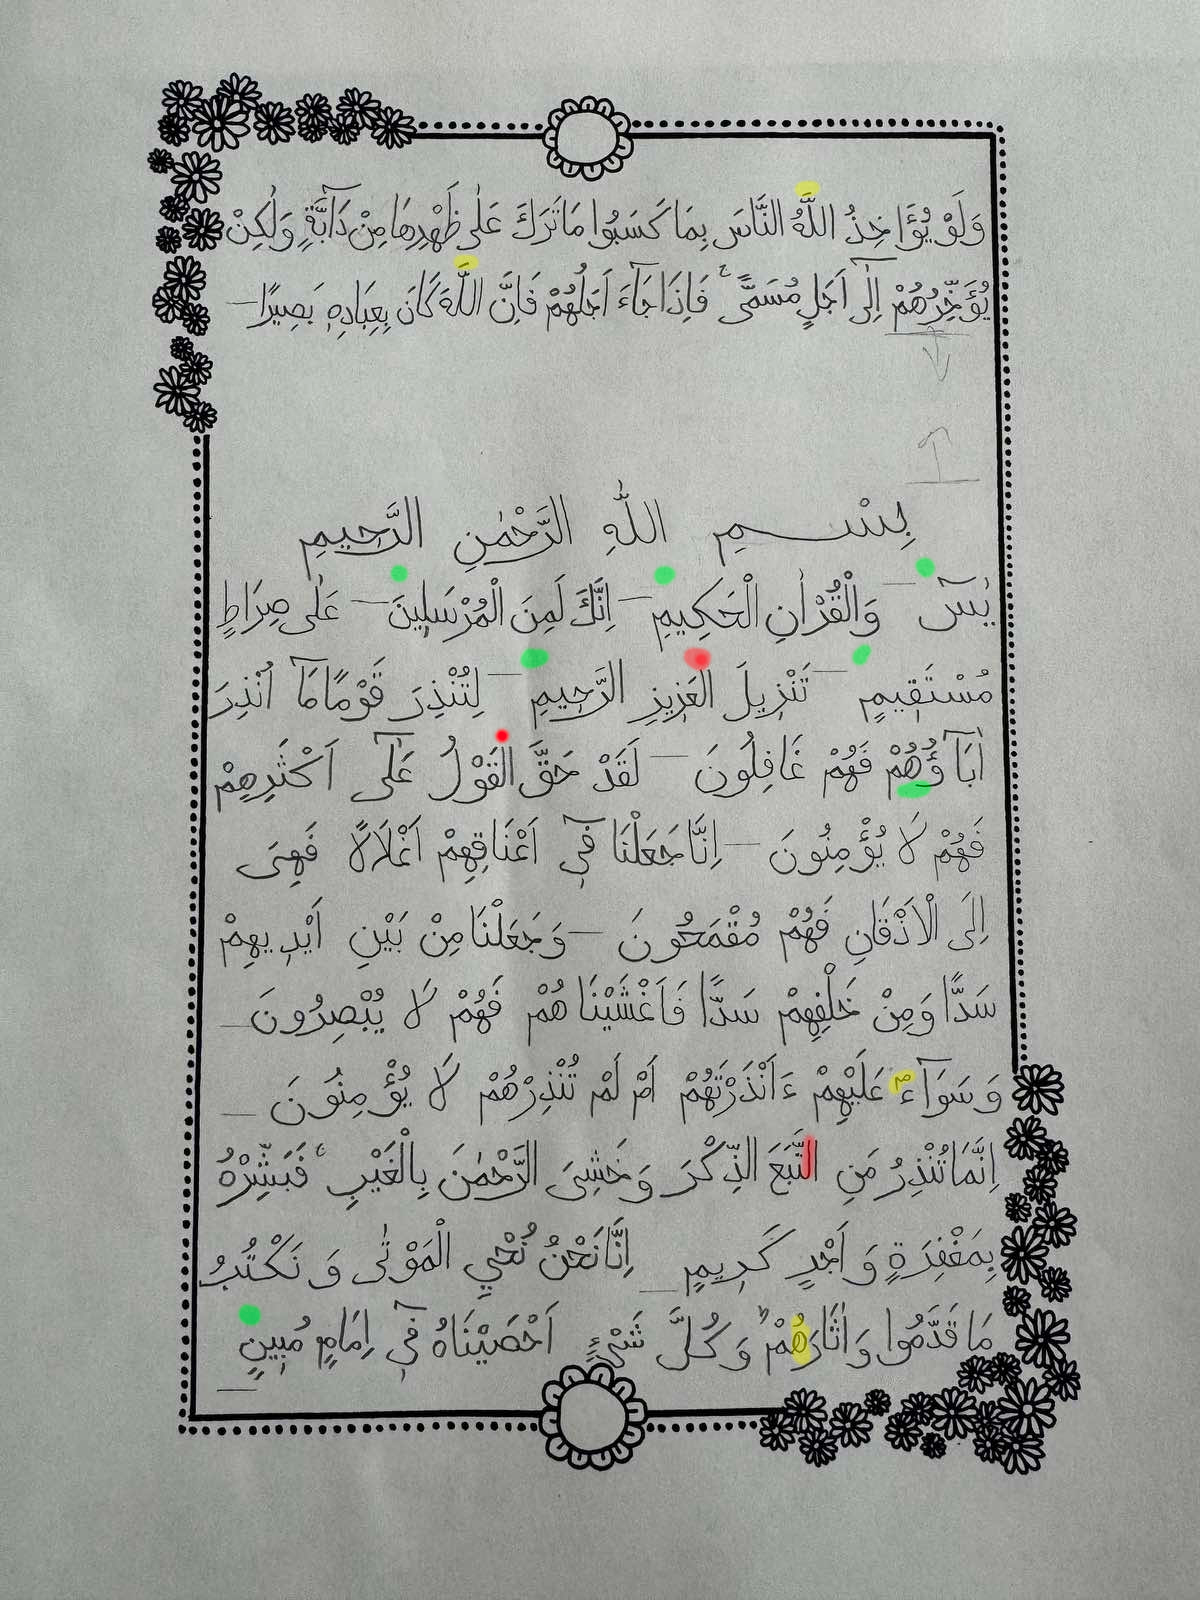 وَلَوْ يُؤَاخِذُ اللّٰهُ النَّاسَ بِمَا كَسَبُوا مَا تَرَكَ عَلٰى ظَهْرِهَا مِنْ دَٓابَّةٍ وَلٰكِنْ
يُؤَخِّرُهُمْ اِلٰٓى اَجَلٍ مُسَمًّىۚ فَاِذَا جَٓاءَ اَجَلُهُمْ فَاِنَّ اللّٰهَ كَانَ بِعِبَادِهٖ بَصِيرًا
بِسْــــمِ اللّٰهِ الرَّحْمٰنِ الرَّحِيمِ
يٰسٓ — وَالْقُرْاٰنِ الْحَكِيمِ — اِنَّكَ لَمِنَ الْمُرْسَلِينَ — عَلٰى صِرَاطٍ
مُسْتَقِيمٍ — تَنْزِيلَ الْعَزِيزِ الرَّحِيمِ — لِتُنْذِرَ قَوْمًا مَٓا اُنْذِرَ
اٰبَٓاؤُهُمْ فَهُمْ غَافِلُونَ — لَقَدْ حَقَّ الْقَوْلُ عَلٰٓى اَكْثَرِهِمْ
فَهُمْ لَا يُؤْمِنُونَ — اِنَّا جَعَلْنَا فٖٓي اَعْنَاقِهِمْ اَغْلَالًا فَهِىَ
اِلَى الْاَذْقَانِ فَهُمْ مُقْمَحُونَ — وَجَعَلْنَا مِنْ بَيْنِ اَيْدٖيهِمْ
سَدًّا وَمِنْ خَلْفِهِمْ سَدًّا فَاَغْشَيْنَاهُمْ فَهُمْ لَا يُبْصِرُونَ —
وَسَوَٓاءٌ عَلَيْهِمْ ءَاَنْذَرْتَهُمْ اَمْ لَمْ تُنْذِرْهُمْ لَا يُؤْمِنُونَ —
اِنَّمَا تُنْذِرُ مَنِ اتَّبَعَ الذِّكْرَ وَخَشِىَ الرَّحْمٰنَ بِالْغَيْبِۚ فَبَشِّرْهُ
بِمَغْفِرَةٍ وَاَجْرٍ كَرِيمٍ — اِنَّا نَحْنُ نُحْيِي الْمَوْتٰى وَنَكْتُبُ
مَا قَدَّمُوا وَاٰثَارَهُمْؕ وَكُلَّ شَىْءٍ اَحْصَيْنَاهُ فٖٓي اِمَامٍ مُبِينٍ —